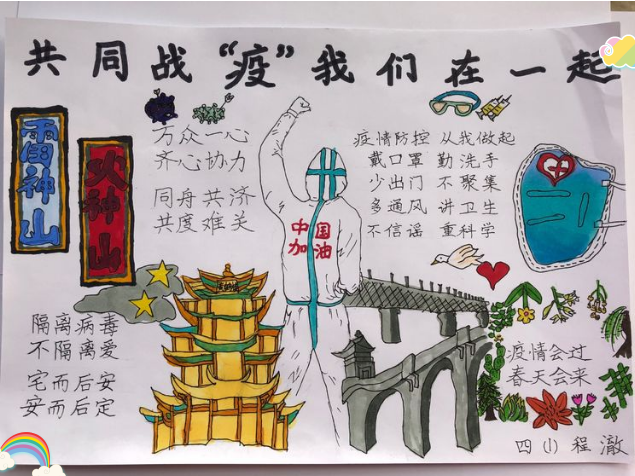 共同战“疫”我们在一起
雷神山
火神山
万众一心
齐心协力
同舟共济
共度难关
疫情防控 从我做起
戴口罩 勤洗手
少出门 不聚集
多通风 讲卫生
不信谣 重科学
中国
加油
隔离病毒
不隔离爱
宅而后安
安而后定
疫情会过
春天会来
四(1) 程澈